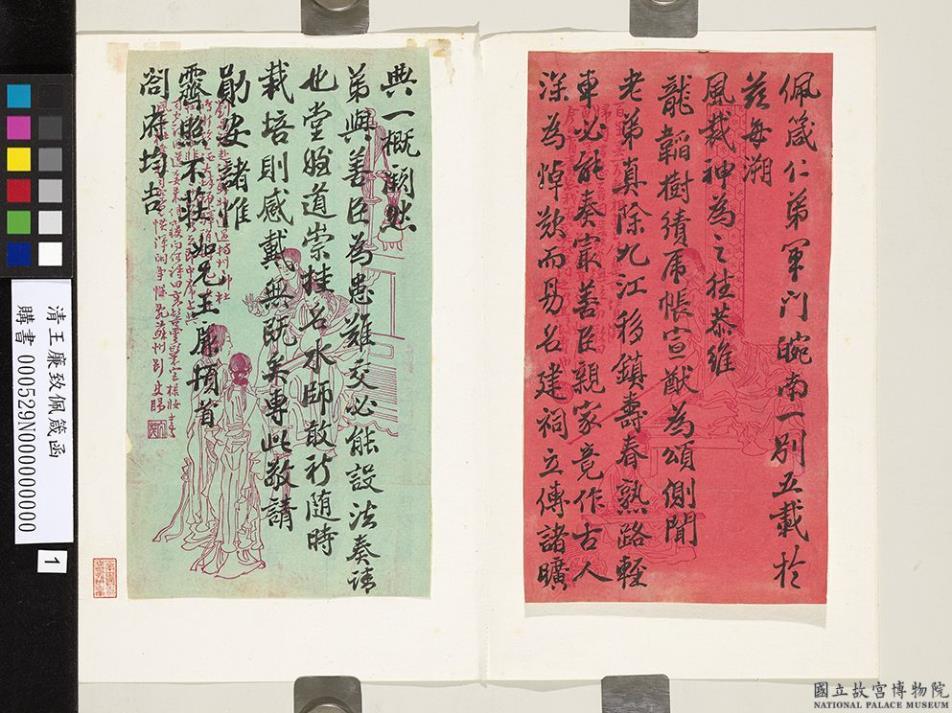 佩箴仁弟軍門皖南一別五載於
茲每溯
風裁神為之往恭維
龍韜樹績虎帳宣猷為頌側聞
老弟真除九江移鎮壽春熟路輕
車必能奏宸善臣親家竟作古人
深為悼歎而易名建祠立傳諸曠
典一概闕然
弟與善臣為患難交必能設法奏請
也堂姪道崇挂名水師敢祈隨時
栽培則感戴無既矣專此敬請
勛安諸惟
霽照不莊如兄王廉頓首
閤府均吉
清王廉致佩箴函
購書 000529N000000000
1
國立故宮博物院
NATIONAL PALACE MUSEUM